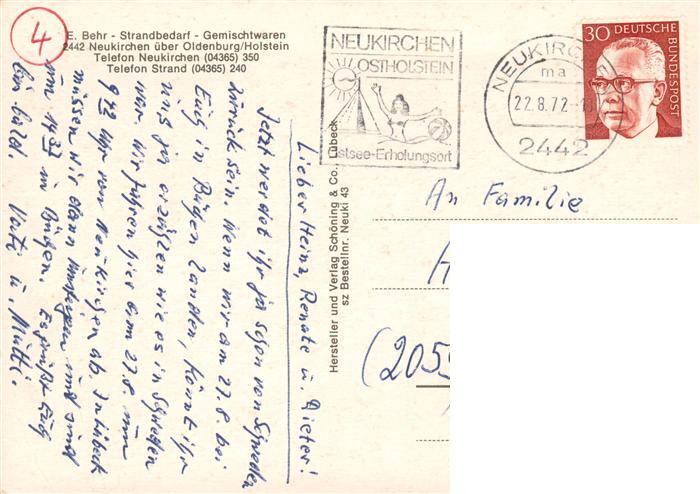 4
E. Behr - Strandbedarf - Gemischtwaren
2442 Neukirchen über Oldenburg/Holstein
Telefon Neukirchen (04365) 350
Telefon Strand (04365) 240
NEUKIRCHEN
OSTHOLSTEIN
Ostsee-Erholungsort
NEUKIRCHEN
ma
22.8.72
2442
30 DEUTSCHE
BUNDESPOST
Hersteller und Verlag Schöning & Co., Lübeck
sz Bestellnr. Neuki 43
Lieber Heinz, Renate u. Dieter!
Jetzt werdet ihr ja schon von Schweden
zurück sein. Wenn wir am 27.8. bei
Euch in Büchen landen, könnt ihr
uns ja erzählen wie es in Schweden
war. Wir fahren hier am 27.8. um
9 42 Uhr von Neukirchen ab. In Lübeck
müssen wir dann umsteigen und sind
um 14 in Büchen. Es grüßt Euch
bis bald. Vati u. Mutti.
An Familie
H
(205